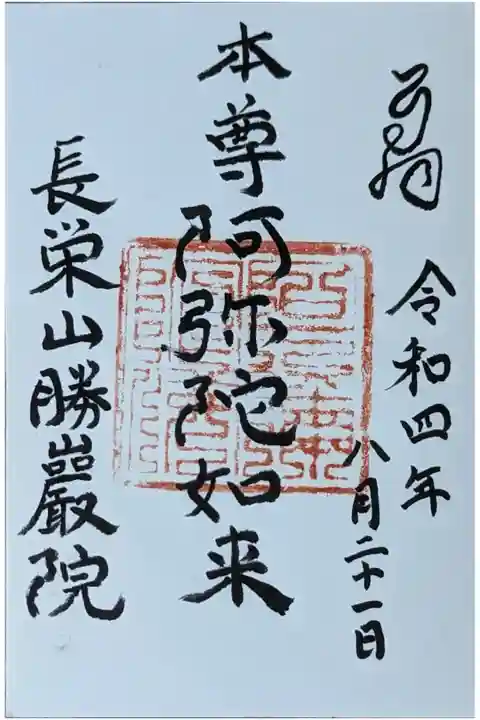 令和四年
八月二十一日
本尊阿弥陀如来
長栄山勝巌院